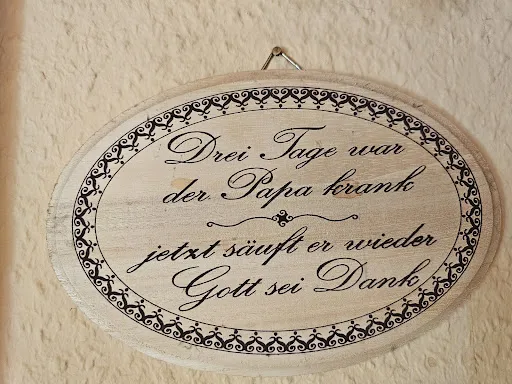 Drei Tage war
der Papa krank
jetzt säuft er wieder
Gott sei Dank